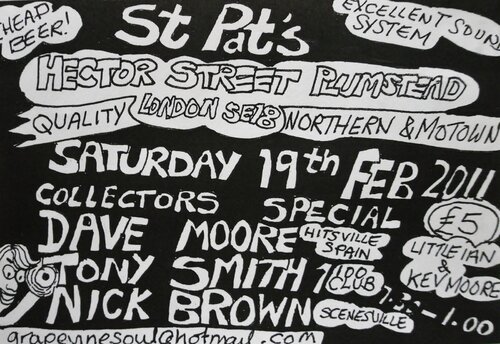 CHEAP BEER!
St Pat's
EXCELLENT SOUND SYSTEM
HECTOR STREET PLUMSTEAD
LONDON SE18
QUALITY NORTHERN & MOTOWN
SATURDAY 19th FEB 2011
COLLECTORS SPECIAL
£5
DAVE MOORE HITSVILLE SPAIN
LITTLE IAN & KEV MOORE
TONY SMITH 100 CLUB
7.30-1.00
NICK BROWN SCENESVILLE
grapevinesoul@hotmail.com